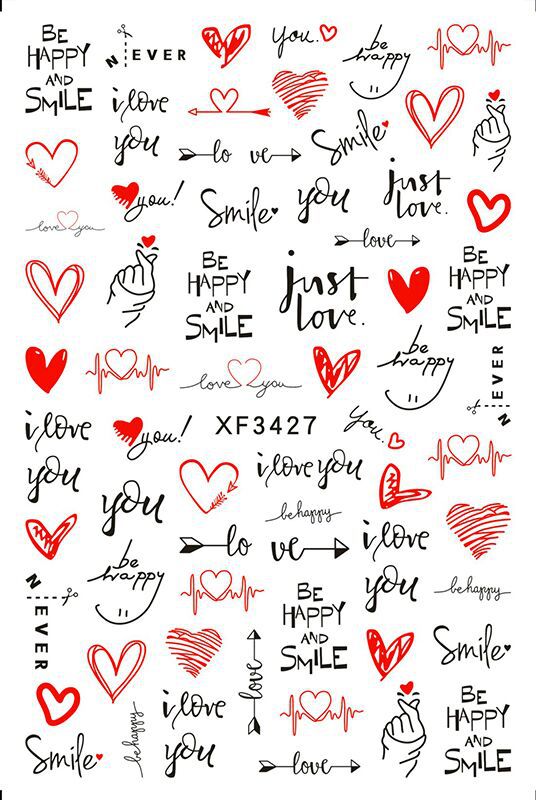 BE
HAPPY
AND
SMILE
NEVER
you.
be
happy
i love
you
lo ve
Smile
just
love.
you!
Smile
you
love you
love
BE
HAPPY
AND
SMILE
just
love.
BE
HAPPY
AND
SMILE
be
happy
NEVER
love you
i love
you
you!
XF3427
you.
i love you
you
be happy
lo ve
i love
you
be
happy
be happy
NEVER
BE
HAPPY
AND
SMILE
Smile
love
i love
you
be happy
Smile
love
BE
HAPPY
AND
SMILE